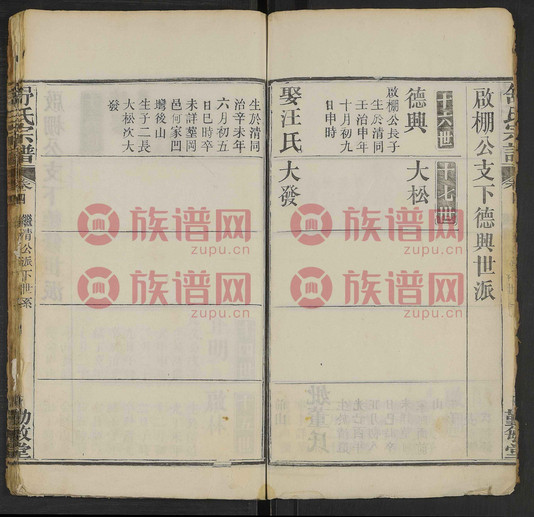 啟棚公支下德興世派
十六世
十七世
德興
大松
啟棚公長子
生於清同
治壬申年
十月初九
日申時
娶汪氏
大發
生於清同
治辛未年
六月初五
日巳時卒
未詳墓岡
邑何家凹
灣後山
生子二長
大松次大
發
舒氏宗譜
卷四
繼清公派下世系
勤敬堂
舒氏宗譜
族谱网
zupu.cn
族谱网
zupu.cn
族谱网
zupu.cn
族谱网
zupu.cn